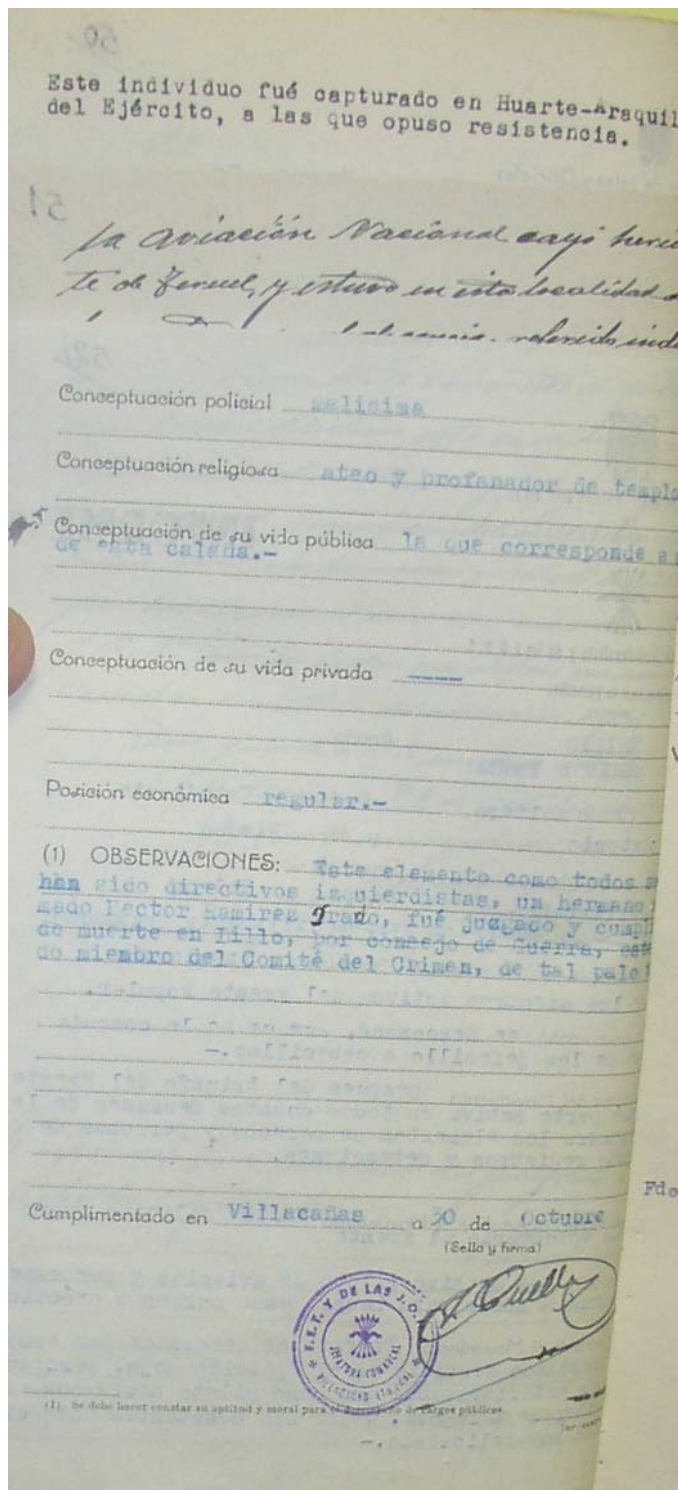 50
Este individuo fué capturado en Huarte-Araquil
del Ejército, a las que opuso resistencia.
51
la aviación Nacional cayó
te de Teruel, y estuvo en esta localidad
referido
Conceptuación policial malisima
Conceptuación religiosa ateo y profanador de templo
Conceptuación de su vida pública la que corresponde a
de esta calaña.-
Conceptuación de su vida privada -----
Posición económica regular.-
(1) OBSERVACIONES: Este elemento como todos s
han sido directivos izquierdistas, un hermano
mado Hector Ramirez Grado, fué juzgado y cumpl
de muerte en Lillo, por consejo de Guerra, est
do miembro del Comité del Crimen, de tal palo
Fdo
Cumplimentado en Villacañas a 30 de Octubre
(Sello y firma)
F.E.T. Y DE LAS J.O.
JEFATURA COMARCAL
(1). Se debe hacer constar su aptitud y moral para el desempeño de cargos públicos.